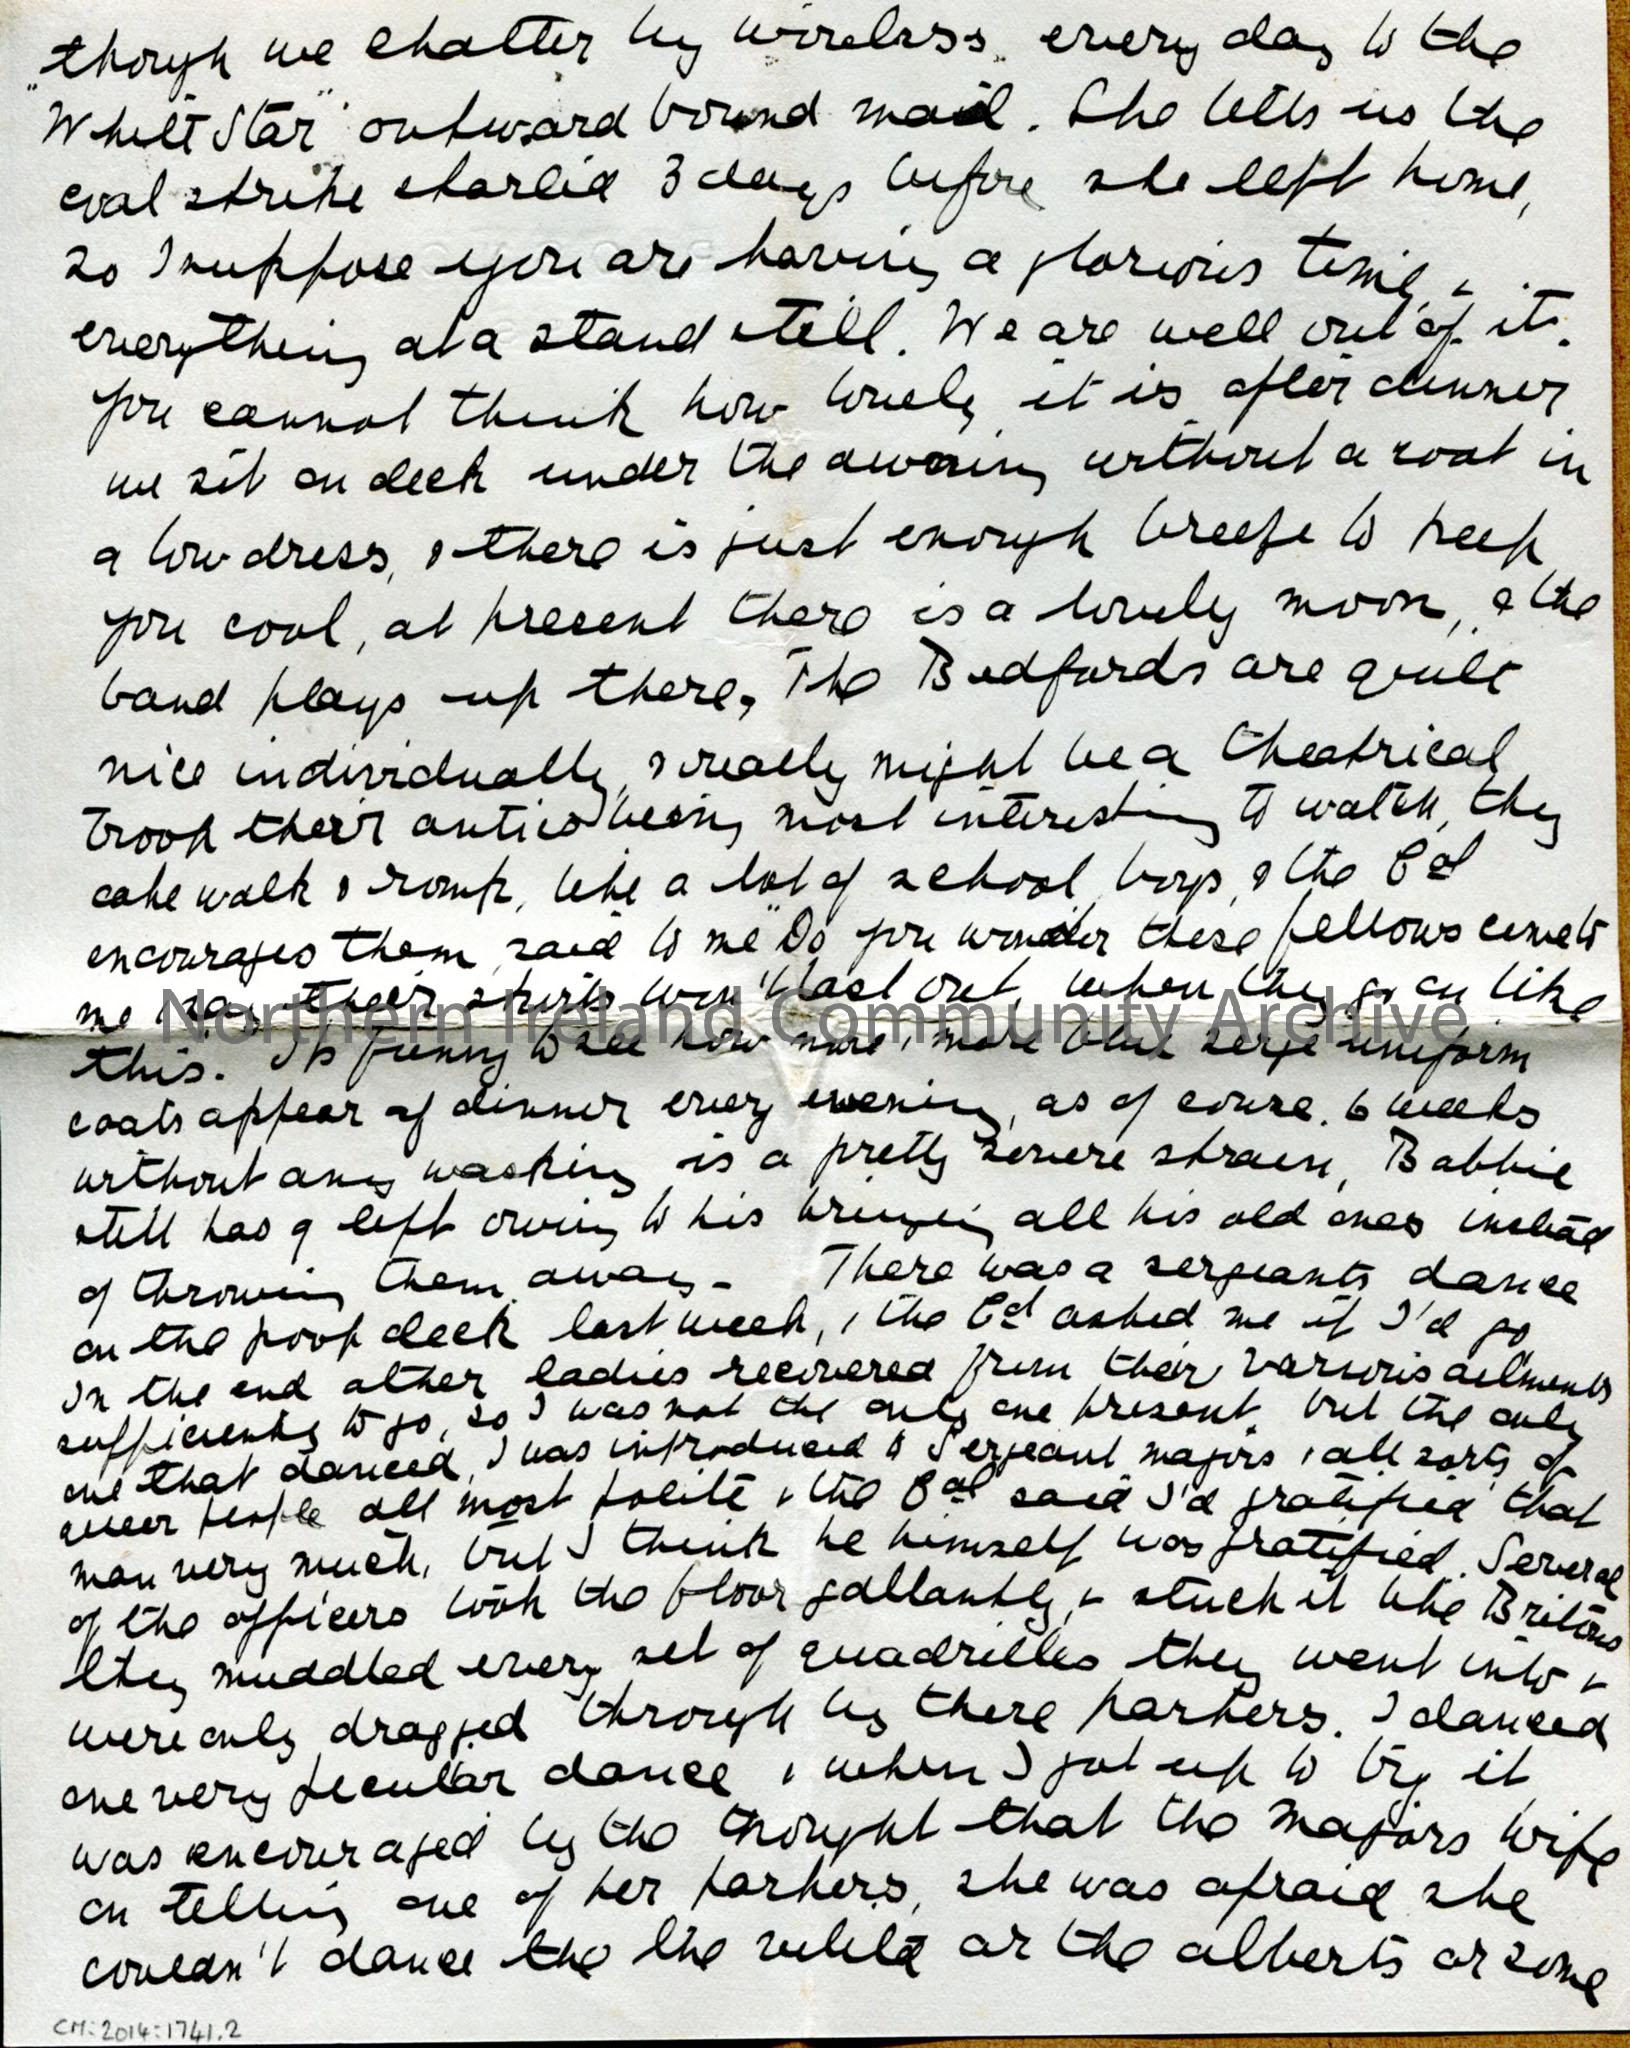 though we chatter by wireless every day to the
"White Star" outward bound mail. She tells us the
coal strike started 3 days before she left home,
so I suppose you are having a glorious time, &
everything at a stand still. We are well out of it.
You cannot think how lovely it is after dinner
we sit on deck under the awning without a coat in
a low dress, & there is just enough breeze to keep
you cool, at present there is a lovely moon, & the
band plays up there, The Bedfords are quite
nice individually, & really might be a theatrical
troop their antics being most interesting to watch, they
cake walk & romp, like a lot of school boys, & the Col
encourages them, said to me "Do you wonder these fellows come to
me & say their shirts won't last out, when they go on like
this. Its funny to see how more & more blue serge uniform
coats appear at dinner every evening, as of course 6 weeks
without any washing is a pretty severe strain, Bobbie
still has 9 left owing to his bringing all his old ones instead
of throwing them away - There was a sergeants dance
on the poop deck last week, & the Col asked me if I'd go
In the end other ladies recovered from their various ailments
sufficiently to go, so I was not the only one present, but the only
one that danced, I was introduced to Sergeant majors & all sorts of
queer people all most polite & the Col said I'd gratified that
man very much, but I think he himself was gratified. Several
of the officers took the floor gallantly, & stuck it like Britons
they muddled every set of quadrilles they went into &
were only dragged through by there partners. I danced
one very peculiar dance & when I got up to try it,
was encouraged by the thought that the majors wife
on telling one of her partners, she was afraid she
couldn't dance the the or the alberts or some
Northern Ireland Community Archive
CM:2014:1741.2